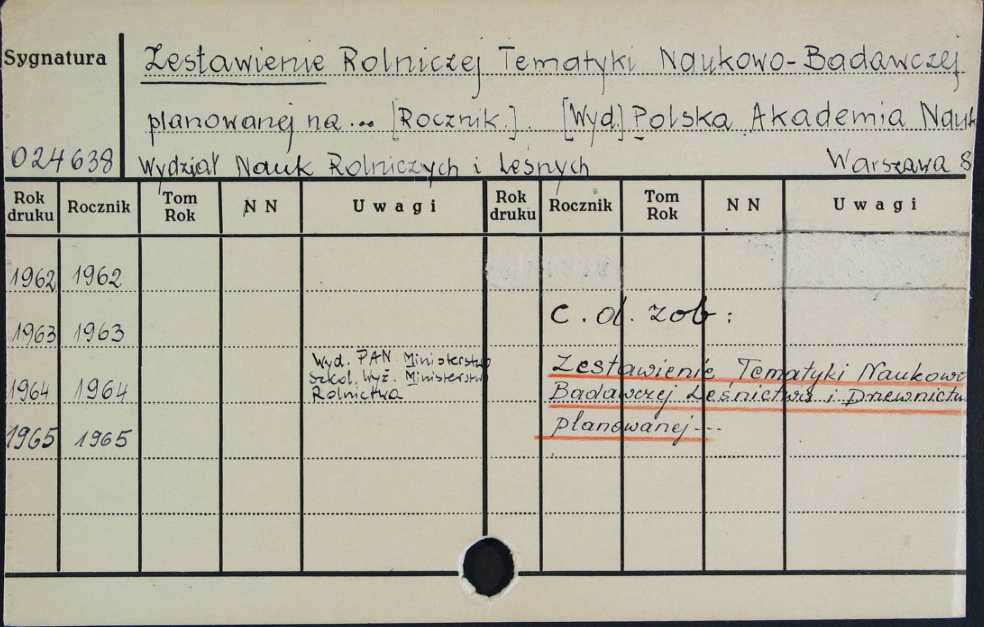 Sygnatura
Zestawienie Rolniczej Tematyki Naukowo-Badawczej
planowanej na... [Rocznik.]. [Wyd.] Polska Akademia Nauk
024638 Wydział Nauk Rolniczych i Leśnych Warszawa 8
Rok druku Rocznik Tom Rok NN Uwagi Rok druku Rocznik Tom Rok NN Uwagi
1962 1962
c.d. zob:
1963 1963
Wyd. PAN. Ministerstwo
Szkol. Wyż. Ministerstwo
Rolnictwa
1964 1964
Zestawienie Tematyki Naukowo
Badawczej Leśnictwa i Drzewnictwa
planowanej...
1965 1965